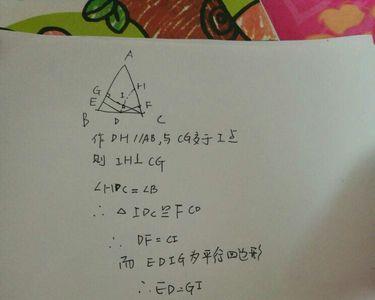 A
G
H
E
I
F
B
D
C
作 DH//AB,与CG交于I点
则 IH⊥CG
∠HDC=∠B
∴ △IDC≌FCD
∴ DF=CI
而 EDIG为平行四边形
∴ED=GI